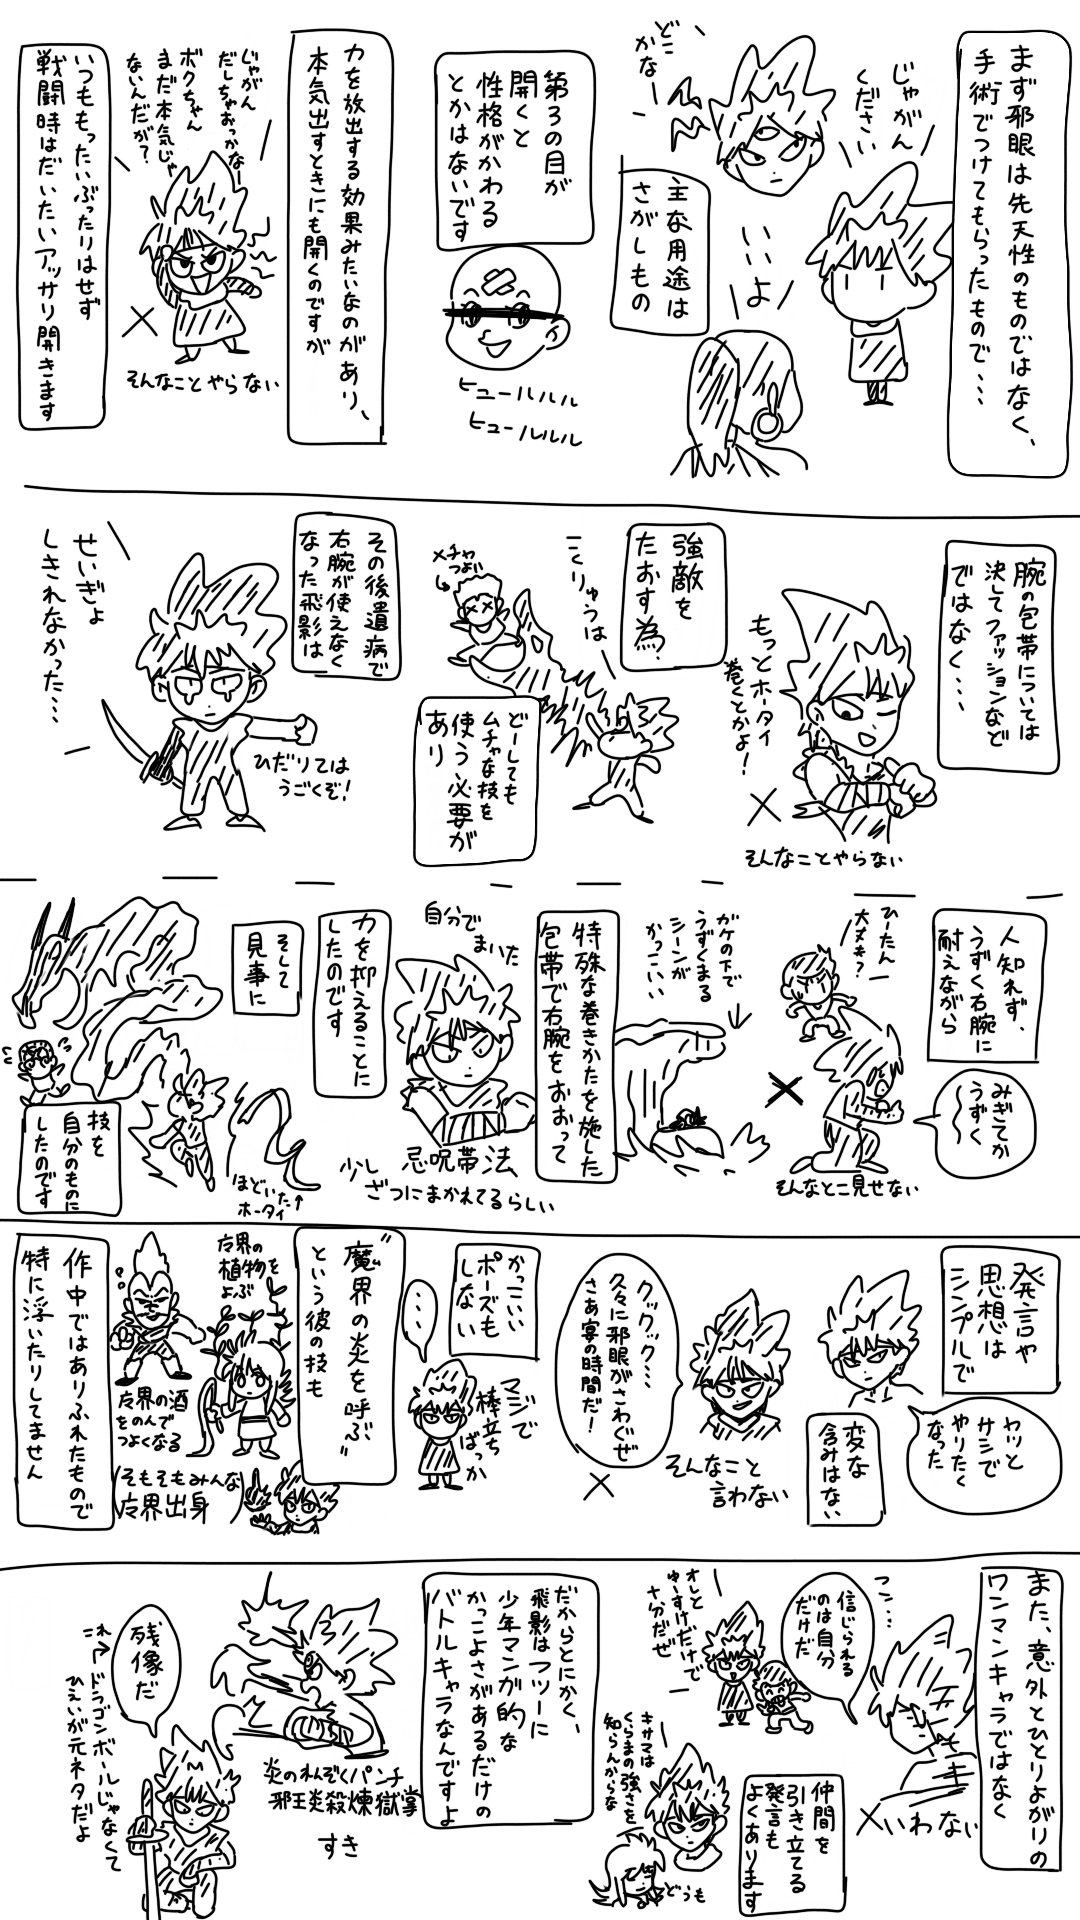 まず邪眼は先天性のものではなく、
手術でつけてもらったもので・・・
じゃがん
ください
いいよ
どこ
かなー
主な用途は
さがしもの
第3の目が
開くと
性格がかわる
とかはないです
ヒュールルル
ヒュールルル
力を放出する効果みたいなのがあり、
本気出すときにも開くのですが
じゃがん
だしちゃおっかなー
ボクちゃん
まだ本気じゃ
ないんだが?
そんなことやらない
いつももったいぶったりはせず
戦闘時はだいたいアッサリ開きます
腕の包帯については
決してファッションなど
ではなく・・・
もっとホータイ
巻くとかよ!
そんなことやらない
強敵を
たおす為、
こくりゅうは
メチャ
つよい
どーしても
ムチャな技を
使う必要が
あり
その後遺病で
右腕が使えなく
なった飛影は
ひだりては
うごくぞ!
せいぎょ
しきれなかった…
人知れず、
うずく右腕に
耐えながら
みぎてか
うずく
ひーたん
大丈夫?
そんなとこ見せない
ガケの下で
うずくまる
シーンが
かっこいい
特殊な巻きかたを施した
包帯で右腕をおおって
自分で
まいた
忌呪帯法
少し
ざつにまかれてるらしい
力を抑えることに
したのです
そして
見事に
ほどいた
ホータイ
技を
自分のものに
したのです
発言や
思想は
シンプルで
ヤツと
サシで
やりたく
なった
変な
含みはない
クックック…
久々に邪眼がさわぐぜ
さあ宴の時間だ!
そんなこと
言わない
かっこいい
ポーズも
しない
・・・
マジで
棒立ち
ばっか
"魔界の炎を呼ぶ"
という彼の技も
植物を
よぶ
をのんで
つよくなる
そもそもみんな
作中ではありふれたもので
特に浮いたりしてません
また、意外とひとりよがりの
ワンマンキャラではなく
フン…
信じられる
のは自分
だけだ
いわない
オレと
ゆーすけだけで
十分だぜ
仲間を
引き立てる
発言も
よくあります
キサマは
くらまの強さを
知らんからな
どうも
だからとにかく、
飛影はフツーに
少年マンガ的な
かっこよさがあるだけの
バトルキャラなんですよ
炎のれんぞくパンチ
邪王炎殺煉獄掌
すき
残像だ
これ
ドラゴンボールじゃなくて
ひえいが元ネタだよ